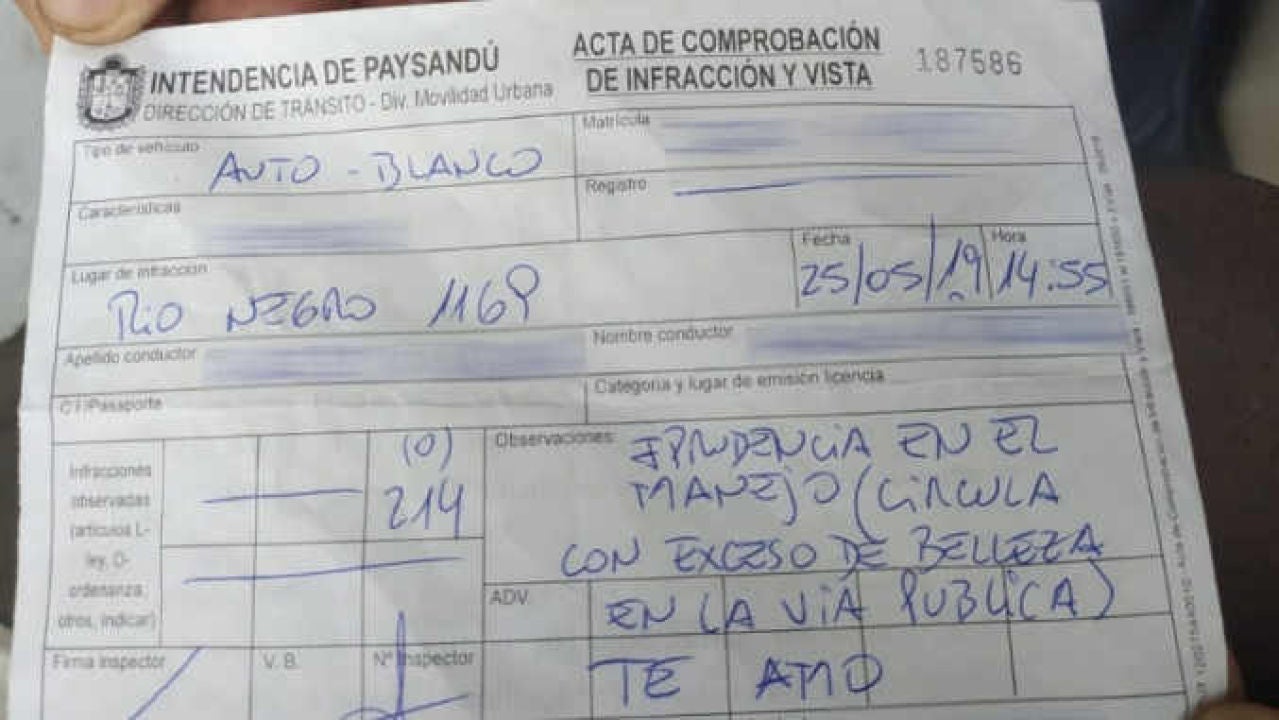 INTENDENCIA DE PAYSANDÚ
DIRECCIÓN DE TRÁNSITO - Div. Movilidad Urbana
ACTA DE COMPROBACIÓN
DE INFRACCIÓN Y VISTA
187586
Tipo de vehículo AUTO - BLANCO
Matrícula
Características
Registro
Lugar de infracción RIO NEGRO 1169
Fecha 25/05/19
Hora 14:55
Apellido conductor
Nombre conductor
C.I./Pasaporte
Categoría y lugar de emisión licencia
Infracciones
observadas
(artículos L-
ley, O-
ordenanza,
otros, indicar)
(0)
214
Observaciones: IPRUDENCIA EN EL
MANEJO (CIRCULA
CON EXCESO DE BELLEZA
EN LA VIA PUBLICA)
TE AMO
ADV.
Firma Inspector
V. B.
Nº Inspector